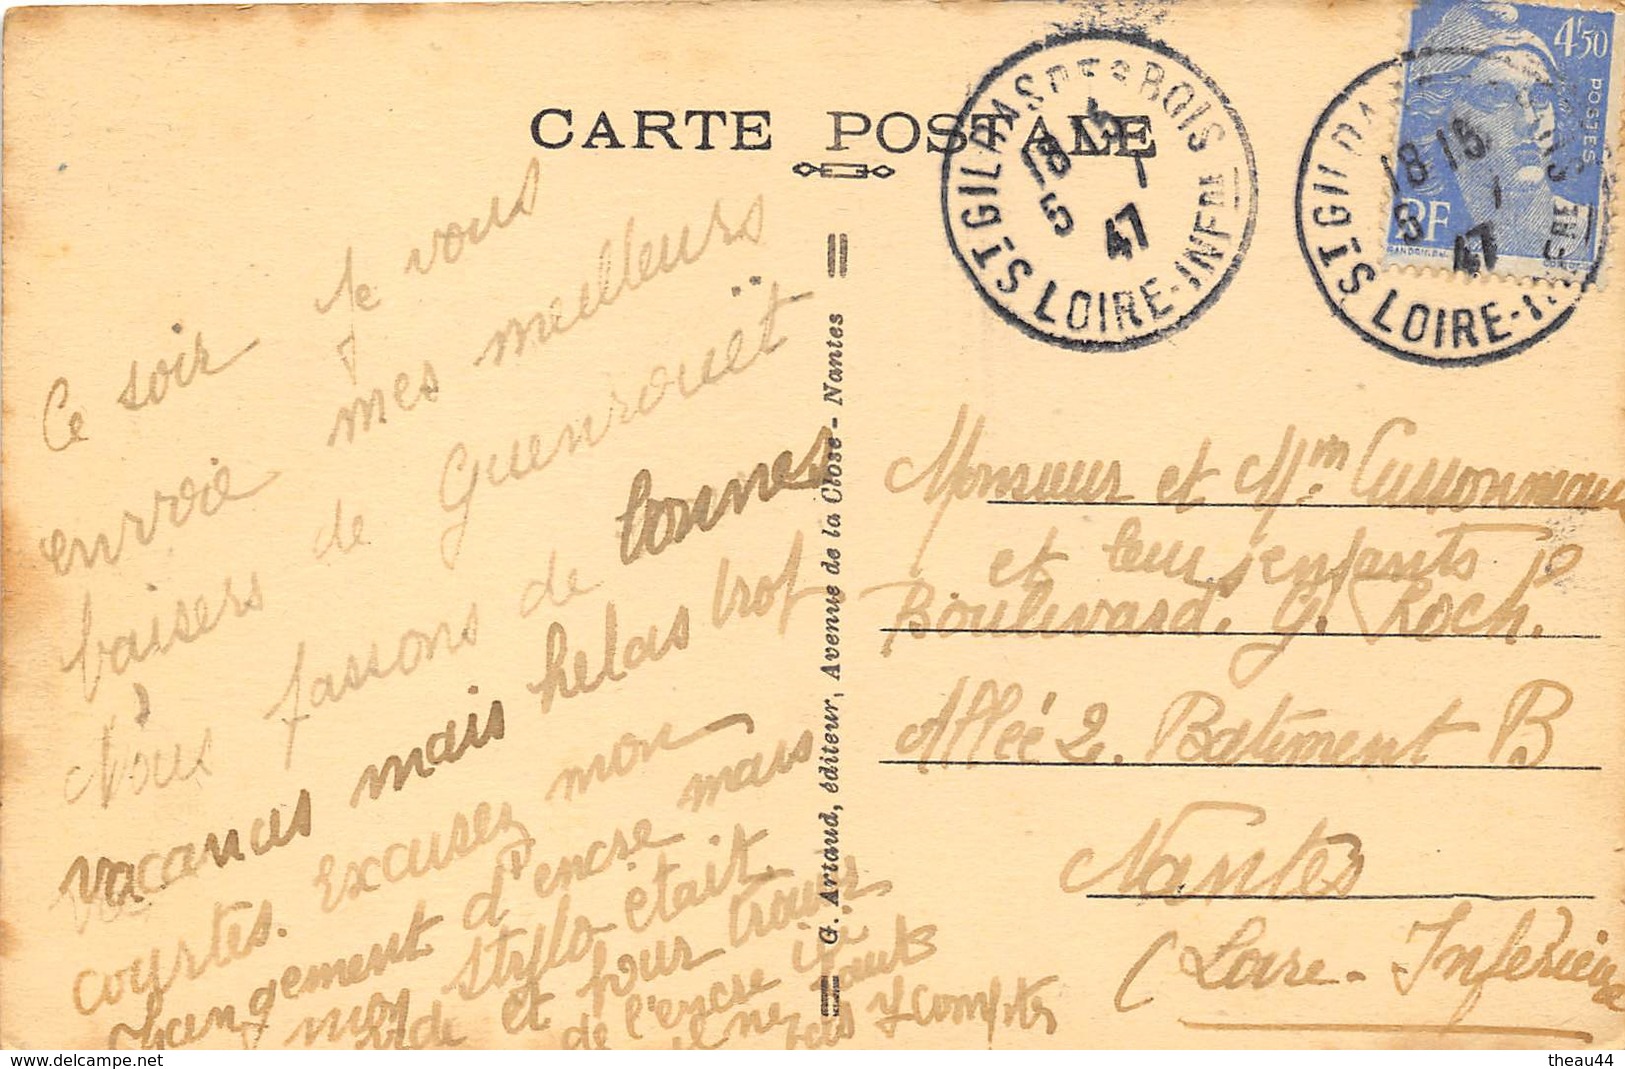 CARTE POSTALE
ST GILDAS DES BOIS
18 15
5 - 1
47
LOIRE-INFRE
4F50
POSTES
RF
ST GILDA
18 18
5 - 1
47
LOIRE-IN
Ce soir je vous
envoie mes meilleurs
baisers de Guenrouët
Nous passons de bonnes
vacances mais helas trop
courtes. Excusez mon
changement d'encre mais
mon stylo était
vide et pour trouver
de l'encre ici
il ne faut
pas y compter
G. Artaud, éditeur, Avenue de la Close - Nantes
Monsieur et Mm Cussonneau
et leurs enfants
Boulevard. G. Roch.
Allée 2. Batiment B
Nantes
(Loire-Inférieure
delcampe.net
theau44